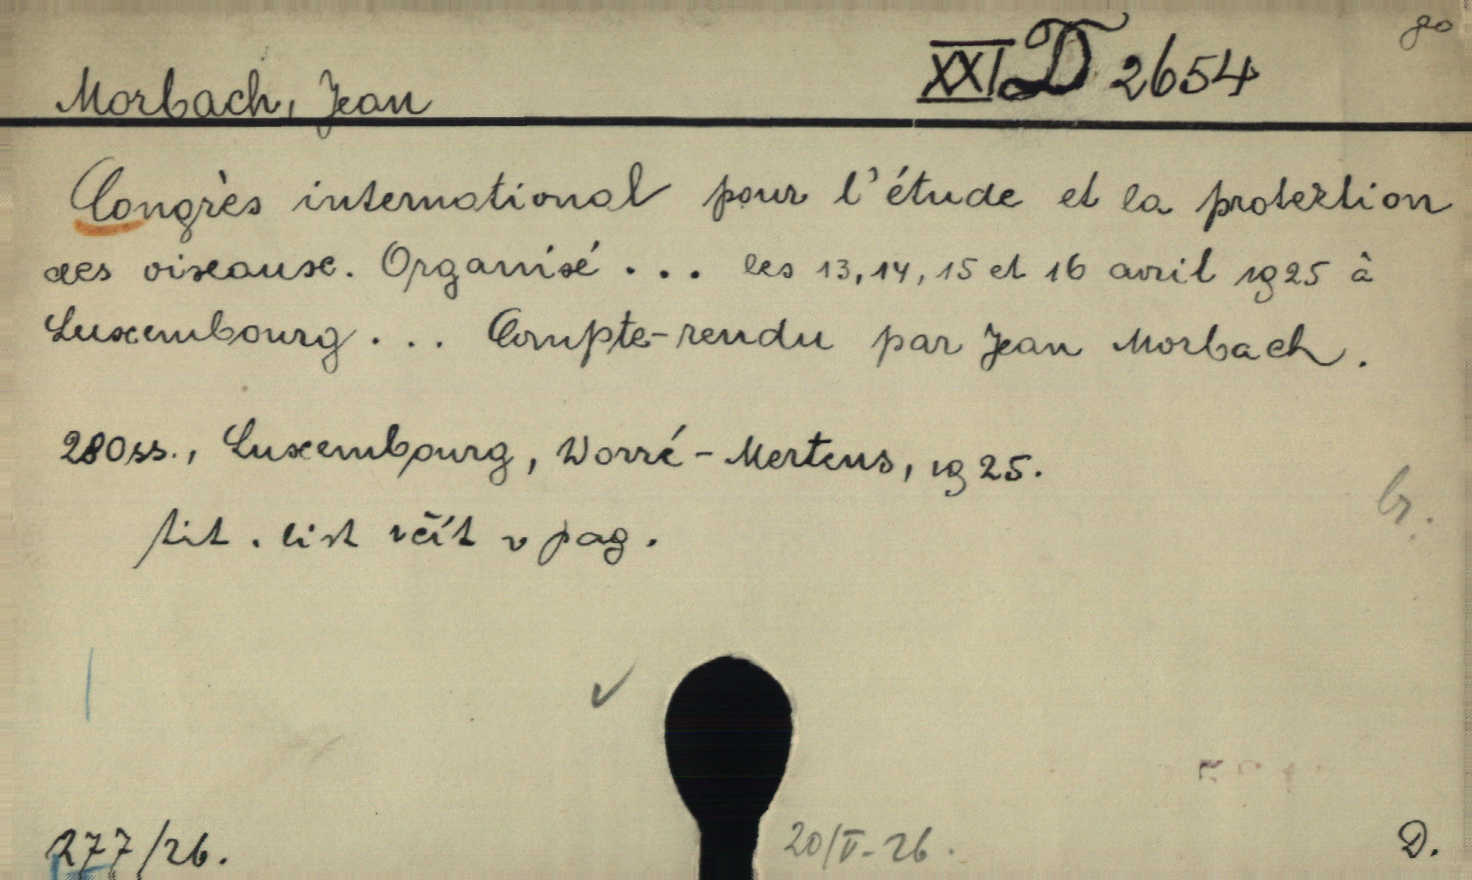 80
XXI D 2654
Morbach, Jean
Congrès international pour l'étude et la protektion
des oiseaux. Organisé ... les 13, 14, 15 et 16 avril 1925 à
Luxembourg ... Compte-rendu par Jean Morbach.
280 ss., Luxembourg, Worré-Mertens, 1925.
br.
tit. list včít v pag.
277/26.
20/V-26.
D.